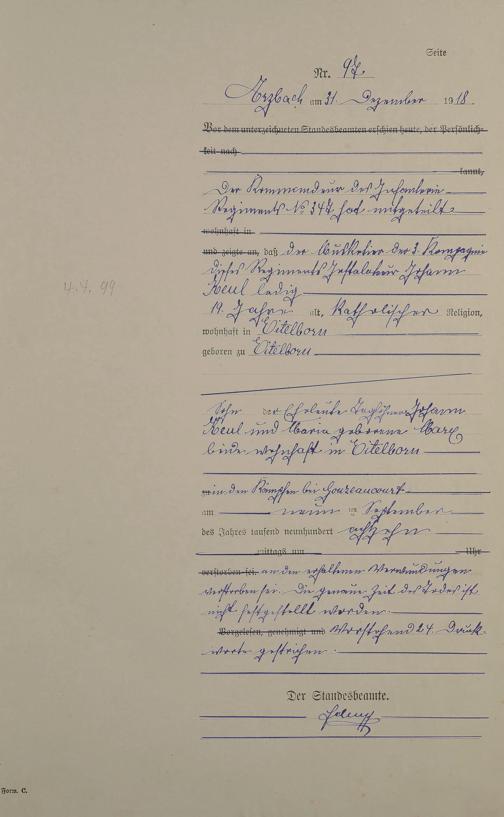 Seite
Nr. 97.
Arzbach am 31. Dezember 1918.
Vor dem unterzeichneten Standesbeamten erschien heute, der Persönlich-
keit nach
kannt,
Der Kommandeur des Infanterie
Regiments No 347 hat mitgeteilt,
wohnhaft in
und zeigte an, daß der Musketier der 3. Kompagnie
dieses Regiments Installateur Johann
Keul ledig
19 Jahre alt, katholischer Religion,
wohnhaft in Eitelborn
geboren zu Eitelborn
4.4.99
Sohn der Eheleute Taglöhner Johann
Keul und Maria geborene Marx
beide wohnhaft in Eitelborn
in den Kämpfen bei Gouzeaucourt
am neun September
des Jahres tausend neunhundert achtzehn
mittags um Uhr
verstorben sei. an den erhaltenen Verwundungen
verstorben sei. Die genaue Zeit des Todes ist
nicht festgestellt worden.
Vorgelesen, genehmigt und Vorstehend 24 Druck
worte gestrichen.
Der Standesbeamte.
Form. C.